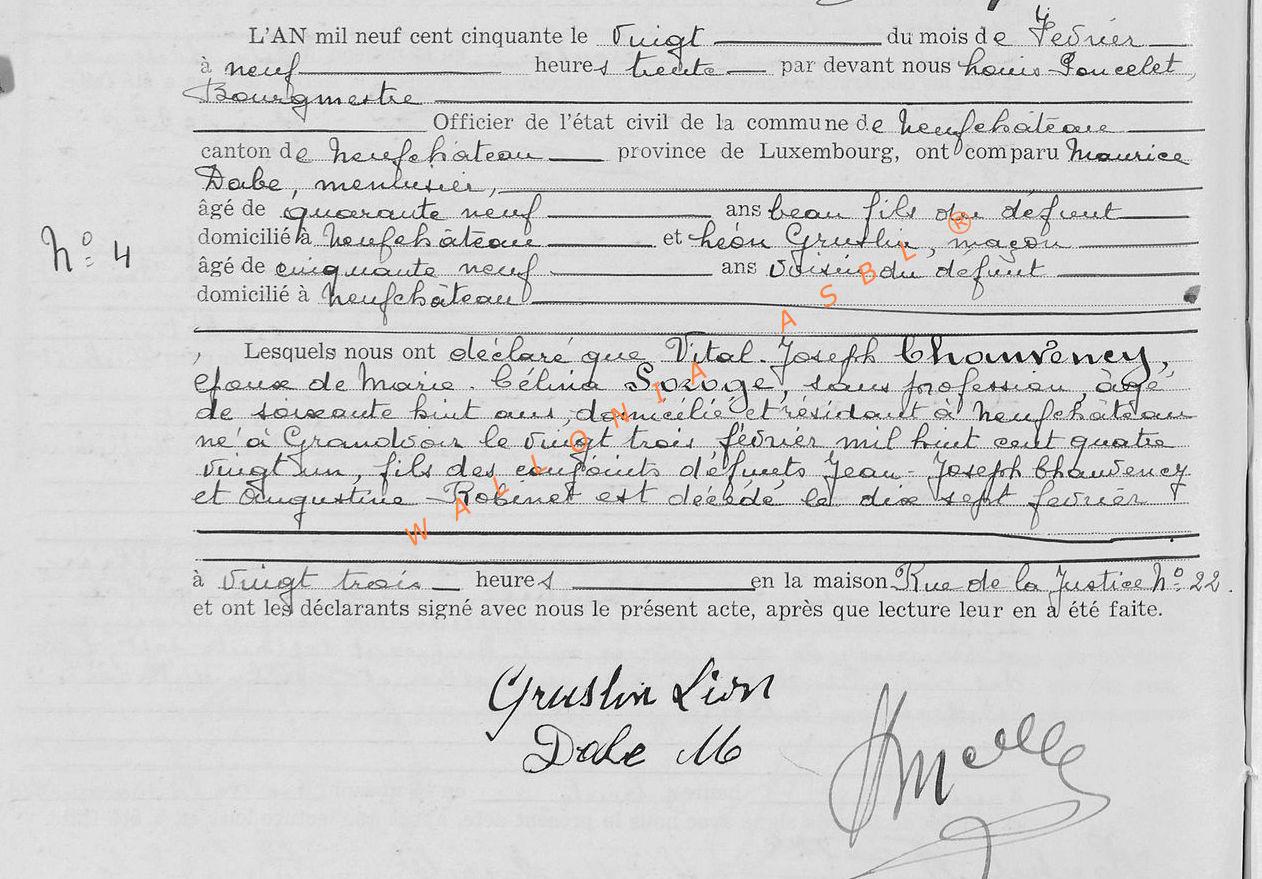 L'AN mil neuf cent cinquante le vingt du mois de Février
à neuf heures trente par devant nous Louis Poncelet,
Bourgmestre
Officier de l'état civil de la commune de Neufchâteau
canton de Neufchâteau province de Luxembourg, ont comparu Maurice
Dabe, menuisier,
âgé de quarante neuf ans beau fils du défunt
domicilié à Neufchâteau et Léon Gruslin, maçon
N° 4
âgé de cinquante neuf ans voisin du défunt
domicilié à Neufchâteau
Lesquels nous ont déclaré que Vital Joseph Chauvency,
époux de Marie Célina, sans profession, âgé
de soixante huit ans, domicilié et résidant à Neufchâteau
né à Grandvoir le vingt trois février mil huit cent quatre
vingt un, fils des conjoints défunts Jean-Joseph Chauvency
et Augustine Robinet est décédé le dix sept février
à vingt trois heures en la maison Rue de la Justice N° 22.
et ont les déclarants signé avec nous le présent acte, après que lecture leur en a été faite.
WALLONIA ASBL ®
Gruslin Léon
Dabe M